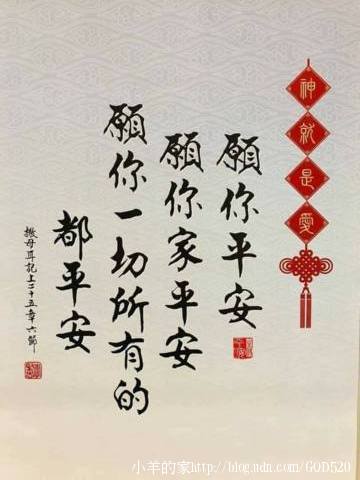 神就是愛
願你平安
願你家平安
願你一切所有的
都平安
撒母耳記上二十五章六節
小羊的家http://blog.udn.com/GOD520